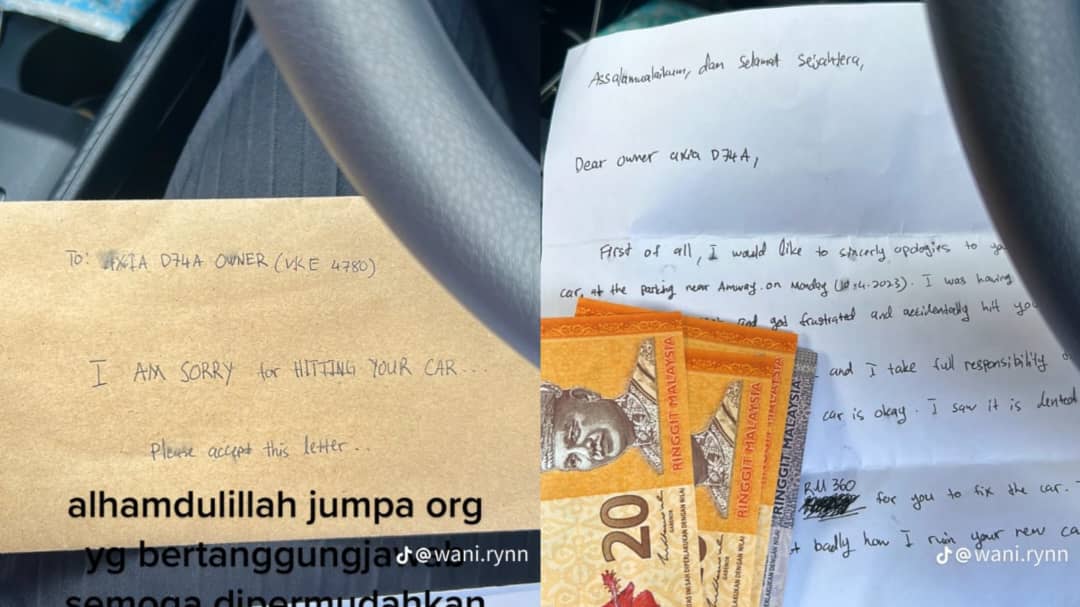 To: AXIA D74A OWNER (VKE 4780)
I AM SORRY for HITTING YOUR CAR...
Please accept this letter..
alhamdulillah jumpa org
yg bertanggungjawab
semoga dipermudahkan
@wani.rynn
Assalamualaikum, dan Selamat Sejahtera,
Dear owner axia D74A,
First of all, I would like to sincerly apologies to
car, at the parking near Amway on Monday (10.4.2023). I was having
and got frustrated and accidentally hit
and I take full responsibility
car is okay. I saw it is dented
RM 360
for you to fix the car.
badly how I ruin your new
RINGGIT MALAYSIA
RINGGIT MALAYSIA
RINGGIT MALAYSIA
RINGGIT MALAYSIA
20
@wani.rynn